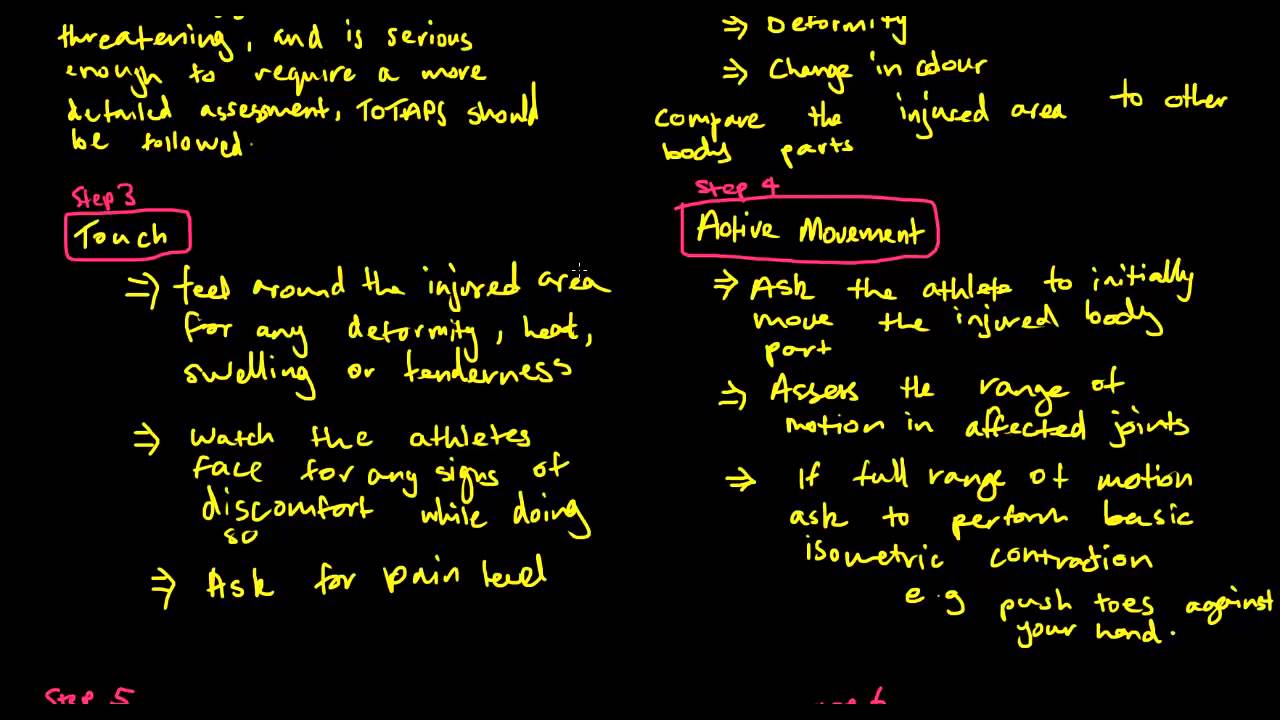 threatening, and is serious
enough to require a more
detailed assessment, TOTAPS should
be followed.
⇒ Deformity
⇒ Change in colour
compare the injured area to other
body parts
Step 3
Touch
⇒ feel around the injured area
for any deformity, heat,
swelling or tenderness
⇒ watch the athletes
face for any signs of
discomfort while doing
so
⇒ Ask for pain level
Step 4
Active Movement
⇒ Ask the athlete to initially
move the injured body
part
⇒ Assess the range of
motion in affected joints
⇒ If full range of motion
ask to perform basic
isometric contraction
e.g push toes against
your hand.
Step 5